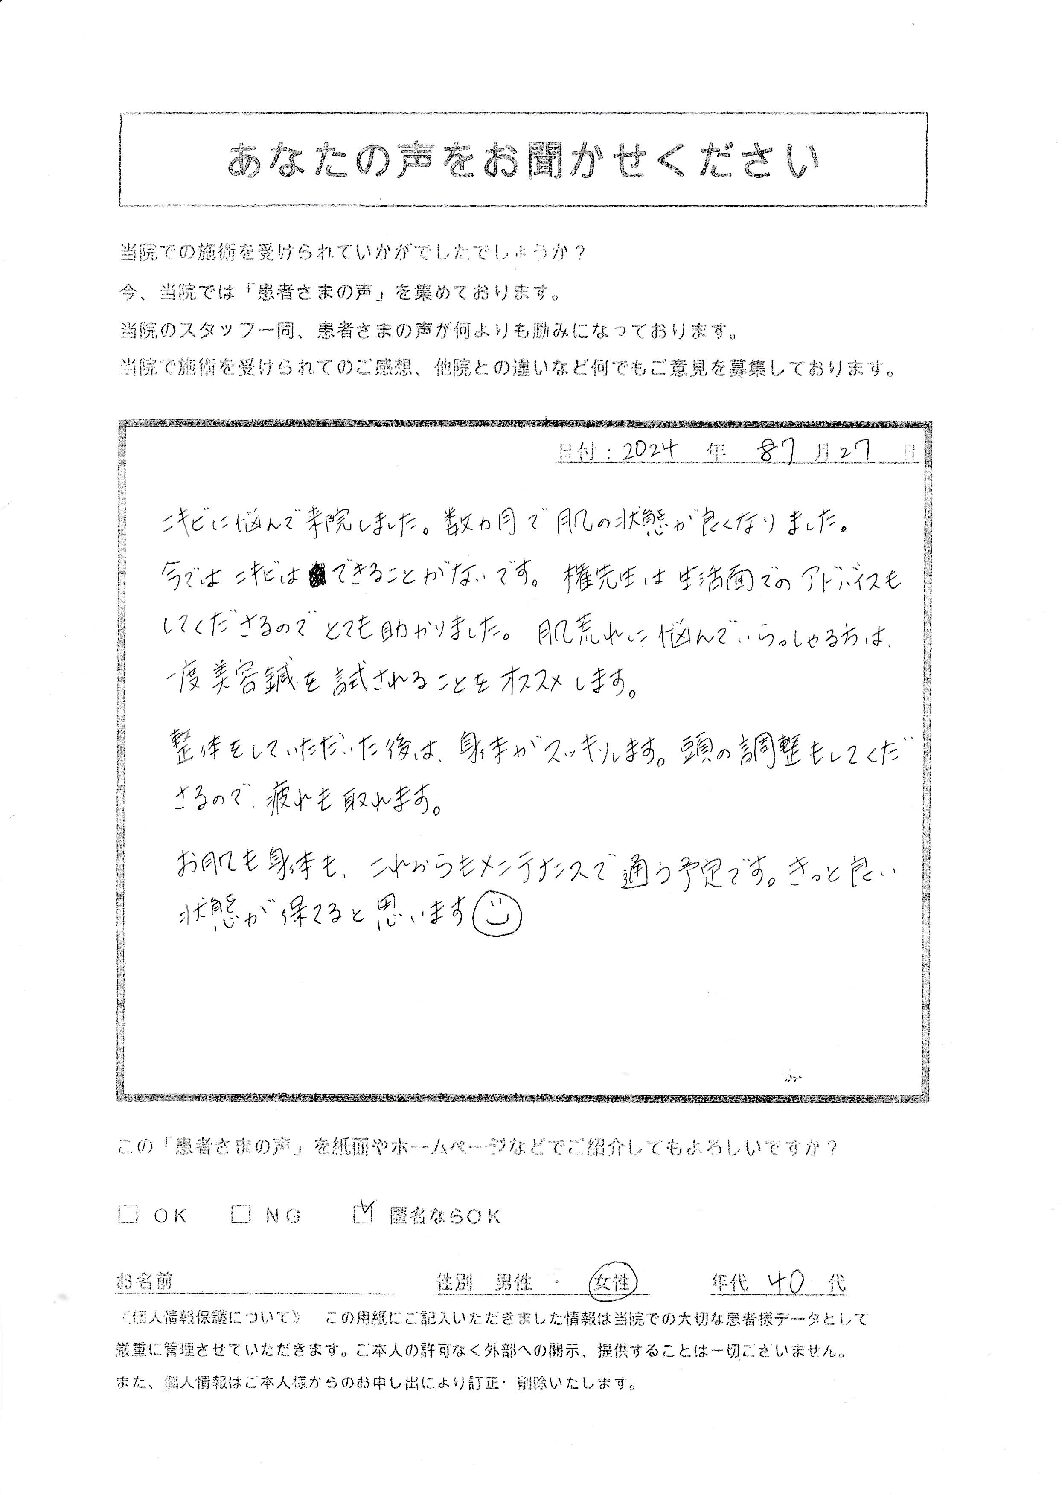 あなたの声をお聞かせください
当院での施術を受けられていかがでしたでしょうか？
今、当院では「患者さまの声」を集めております。
当院のスタッフ一同、患者さまの声が何よりも励みになっております。
当院で施術を受けられてのご感想、他院との違いなど何でもご意見を募集しております。
日付：2024 年 7 月 27 日
ニキビに悩んで来院しました。数カ月で肌の状態が良くなりました。
今ではニキビはできることがないです。権先生は生活面でのアドバイスも
してくださるのでとても助かりました。肌荒れに悩んでいらっしゃる方は、
一度美容鍼を試されることをオススメします。
整体をしていただいた後は、身体がスッキリします。頭の調整もしてくだ
さるので、疲れも取れます。
お肌も身体も、これからもメンテナンスで通う予定です。きっと良い
状態が保てると思います
この「患者さまの声」を紙面やホームページなどでご紹介してもよろしいですか？
□ OK □ NG ☑ 匿名ならOK
お名前 性別 男性 ・ 女性 年代 40 代
《個人情報保護について》 この用紙にご記入いただきました情報は当院での大切な患者様データとして
厳重に管理させていただきます。ご本人の許可なく外部への開示、提供することは一切ございません。
また、個人情報はご本人様からのお申し出により訂正・削除いたします。